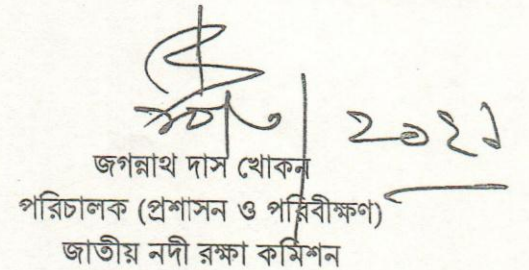 ২০২১
জগন্নাথ দাস খোকন
পরিচালক (প্রশাসন ও পরিবীক্ষণ)
জাতীয় নদী রক্ষা কমিশন